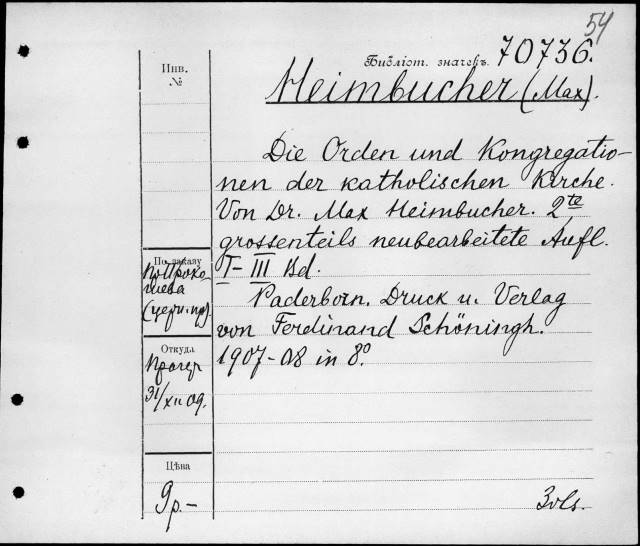 54
Библіот. значекъ. 70736.
Heimbucher (Max).
Инв.
№
Die Orden und Kongregatio-
nen der katholischen Kirche.
Von Dr. Max Heimbucher. 2te
grossenteils neubearbeitete Aufl.
I-III Bd.
Paderborn. Druck u. Verlag
von Ferdinand Schöningh.
1907-08 in 8º.
По заказу
Откуда
31/XII 09.
Цѣна
9р.-
3vls.